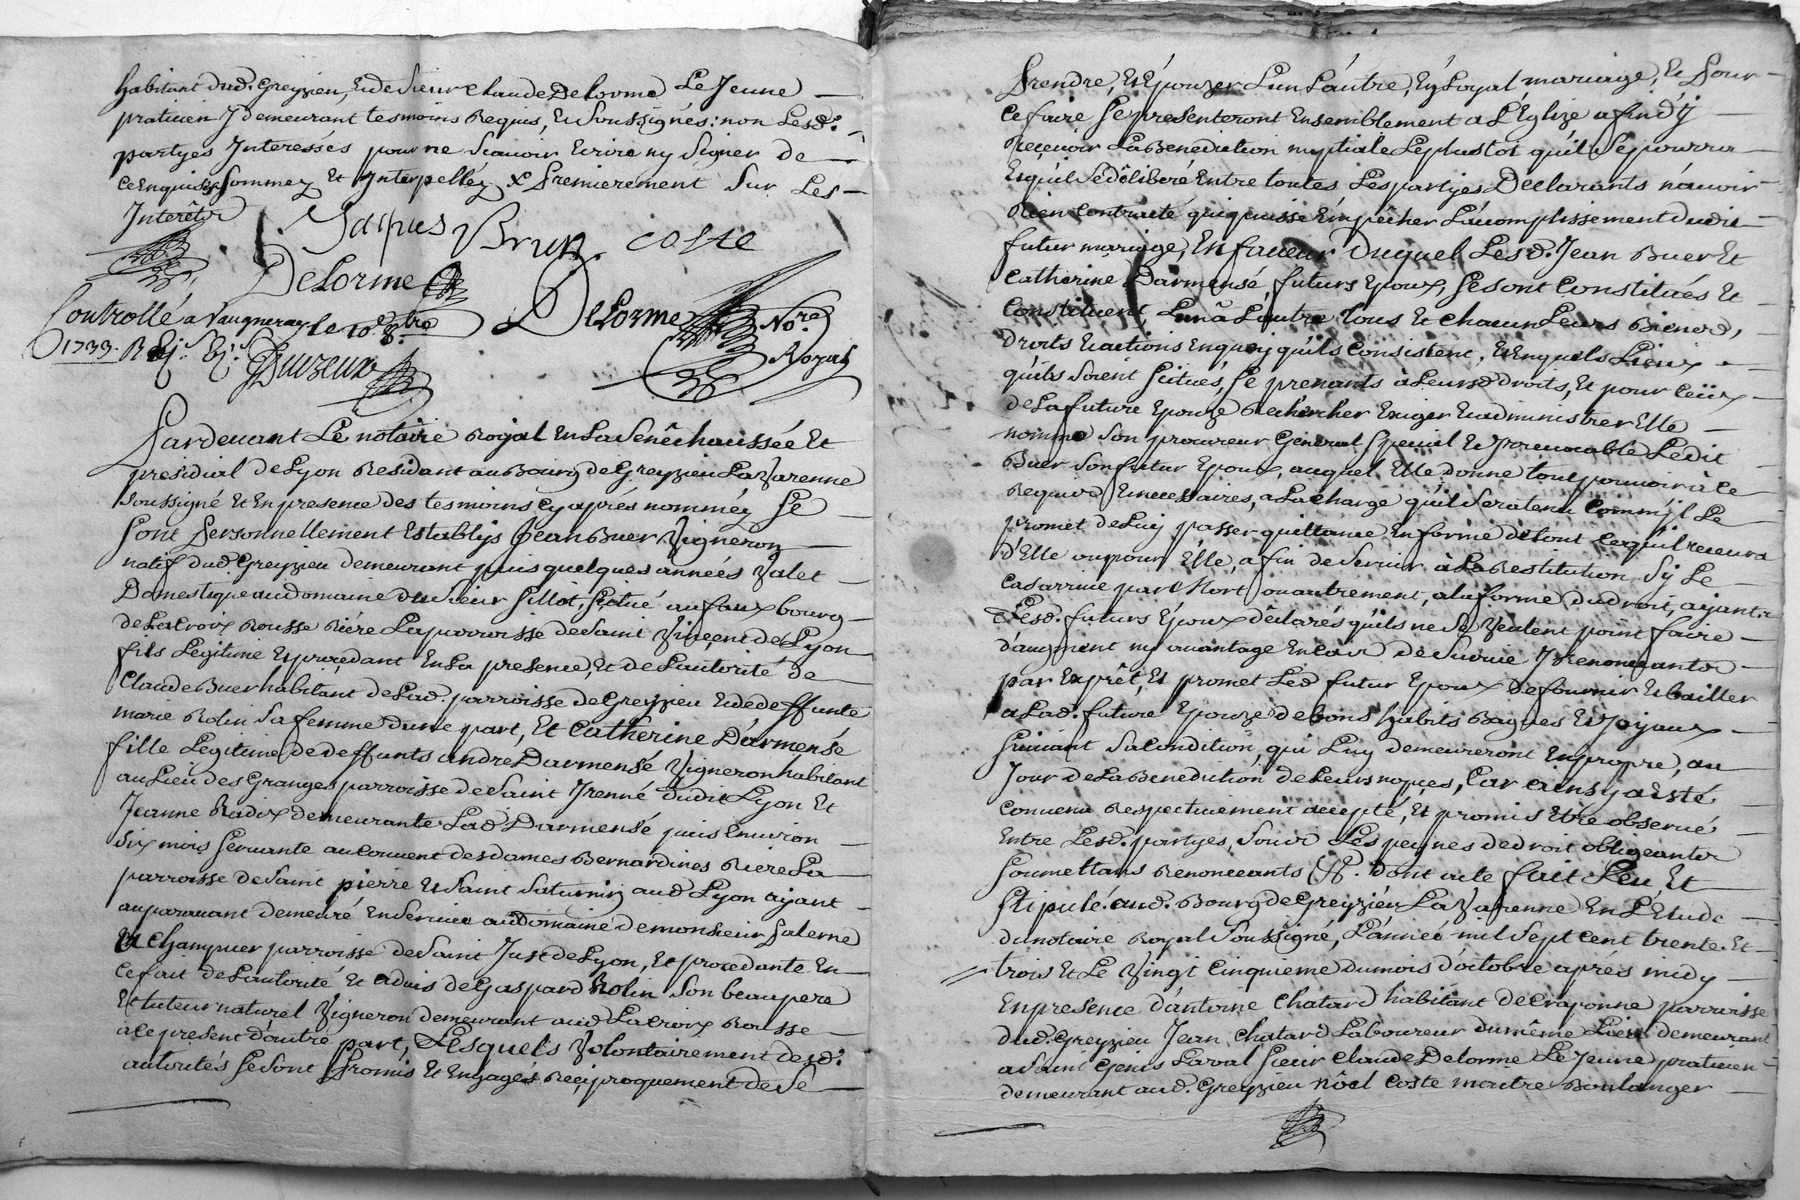 habitant dud. Greyzieu, Et de Sieur Claude Delorme Le Jeune
praticien Y demeurant tesmoins Requis, Et Soussignés; non Lesd.
partyes Interessés pour ne Scavoir Ecrire ny Signer de
ce Enquis Sommez Et Interpellez X Premierement Sur Les
Interêts
Jacques Brun coste
DeLorme Delorme No.re Royal
Controllé a Vaugneray le 10.e 8.bre
1733. R
Pardevant Le notaire Royal En La Senêchaussée Et
presidial de Lyon Residant au Bourg de Greyzieu La Varenne
Soussigné Et En presence des tesmoins cy aprés nommez Se
Sont Personnellement Establys Jean Buer Vigneron
natif dud. Greyzieu demeurant puis quelques années Valet
Domestique au domaine du Sieur Sillot, Scitué au faux bourg
de La Croix Rousse Riére La parroisse de Saint Vincent de Lyon
fils Legitime Et procedant En La presence, Et de L'autorité de
Claude Buer habitant de Lad. parroisse de Greyzieu Et de deffunte
marie Rolin Sa femme d'une part, Et Catherine Darmensé
fille Legitime de deffunts andré Darmensé Vigneron habitant
au Lieu des Granges parroisse de Saint Irenné dudit Lyon Et
Jeanne Radix demeurante Lad. Darmensé puis Environ
Six mois Servante au couvent des dames Bernardines Riere La
parroisse de Saint pierre Et Saint Saturnin aud. Lyon ayant
auparavant demeuré En Service au domaine de monsieur Salerne
a Champver parroisse de Saint Just de Lyon, Et procedante En
ce fait de L'autorité Et advis de Gaspard Rolin Son beaupere
Et tuteur naturel Vigneron demeurant aud. La Croix Rousse
a ce present d'autre part, Lesquels Volontairement desd.
autorités Se Sont Promis Et Engagés Reciproquement de Se
Prendre, Et Epouzer L'un L'autre, En Loyal mariage, Et Pour
ce faire Se presenteront Ensemblement a L'Eglize afin d'y
Recevoir La Benediction nuptiale Le plustot qu'il Se pourra
Et qu'il Sé délibéré Entre toutes Les partyes Declarants n'avoir
Rien contracté qui puisse Empêcher L'acomplissement dudit
futur mariage, En faveur Duquel Lesd. Jean Buer Et
Catherine Darmensé futurs Epoux, Se sont Constitués Et
Constituent L'un a L'autre tous Et chacun Leurs Biens,
droits Et actions En quoy qu'ils Consistent, Et En quels Lieux
qu'ils Soient Scitués, Se prenants à Leursd. droits, Et pour Ceux
de La future Epouze Rechercher Exiger Et administrer Elle
nomme Son procureur General Special Et Irrevocable Ledit
Buer Son futur Epoux, auquel Elle donne tout pouvoir à ce
Requis Et necessaires, a La charge qu'il Sera tenu Comm'il Le
promet de Luy passer quittance En forme de tout ce qu'il recevra
d'Elle ou pour Elle, afin de Servir à La Restitution Sy Le
cas arrive par Mort ou autrement, a la forme du droit, ayants
Lesd. futurs Epoux déclarés qu'ils ne Se Veulent point faire
d'augment ny avantage En cas de Survie Y Renonceants
par Exprêt, Et promet Led. futur Epoux de fournir Et bailler
a Lad. future Epouze de bons habits Bagues Et Joyaux
Suivant Sa Condition, qui Luy demeureront En propre, au
Jour de La Benediction de Leurs nopces, Car ainsy a Esté
convenu Respectivement accepté, Et promis Etre observé
Entre Lesd. partyes, Sous Les peynes de droit obligeants
Soumettans Renonceants &. Dont acte fait Leu, Et
Stipulé aud. Bourg de Greyzieu La Varenne En L'Etude
du notaire Royal Soussigné, L'année mil Sept cent trente Et
trois Et Le Vingt Cinquieme du mois d'octobre aprés midy
En presence d'antoine Chatard habitant de Craponne parroisse
dud. Greyzieu Jean Chatard Laboureur du même Lieu demeurant
a Saint Genis Laval Sieur Claude Delorme Le Jeune praticien
demeurant aud. Greyzieu nôel Coste maitre Boulanger